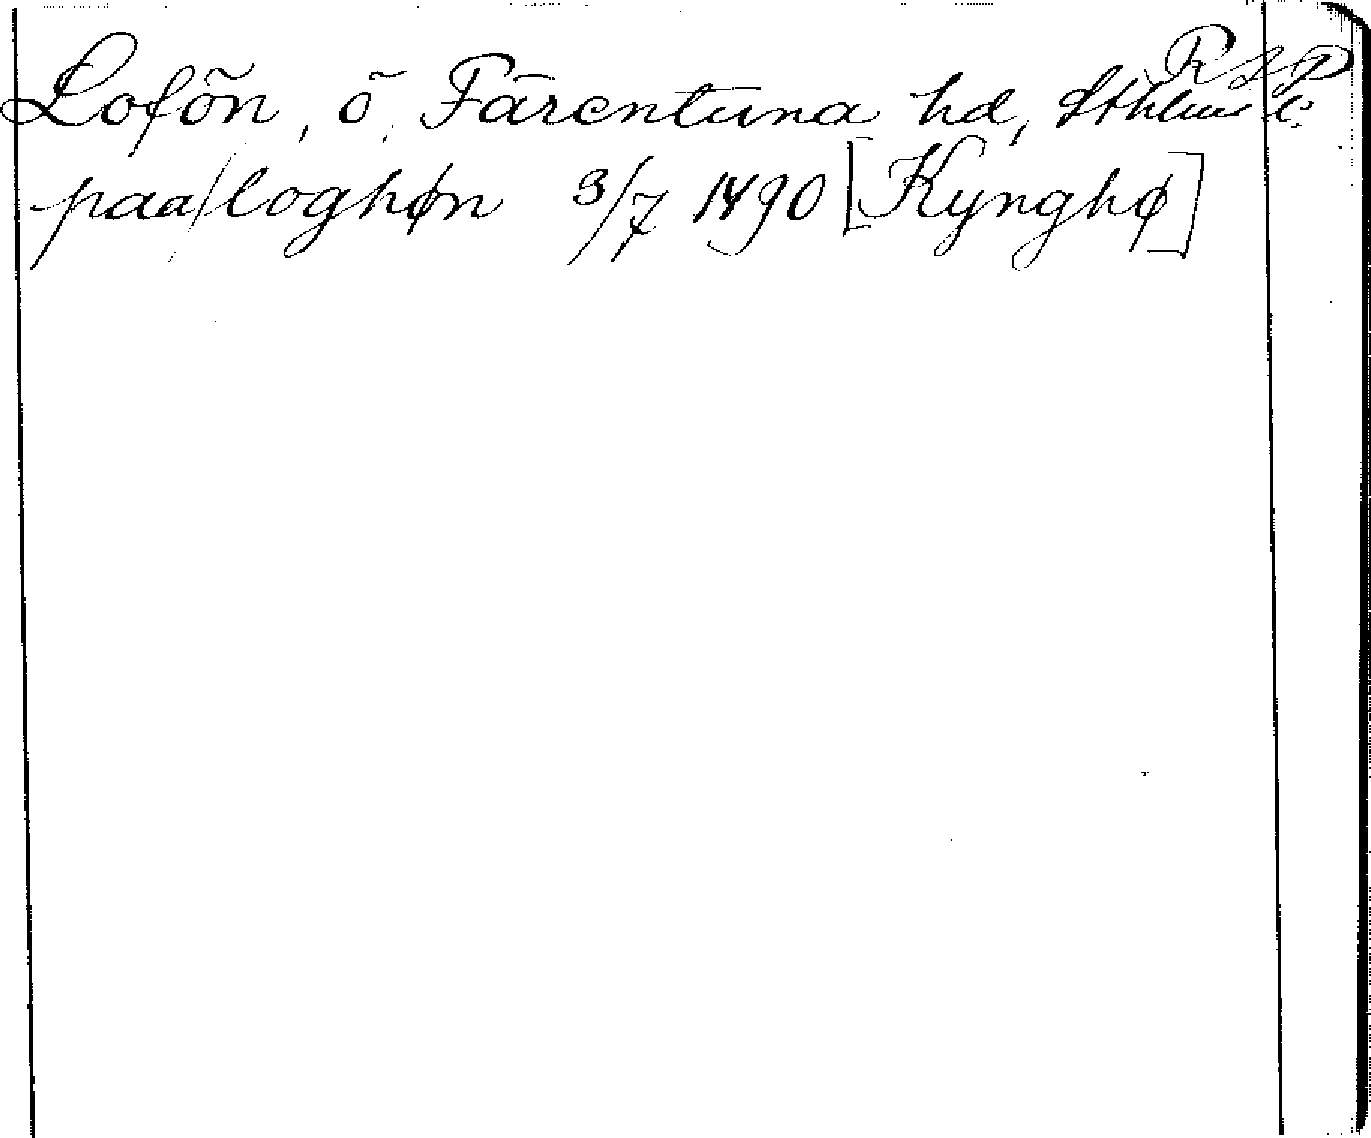 RAP
Lofön, ö, Färentuna hd, Sthlms l:
paa/loghøn 3/7 1490 [Kynghø]